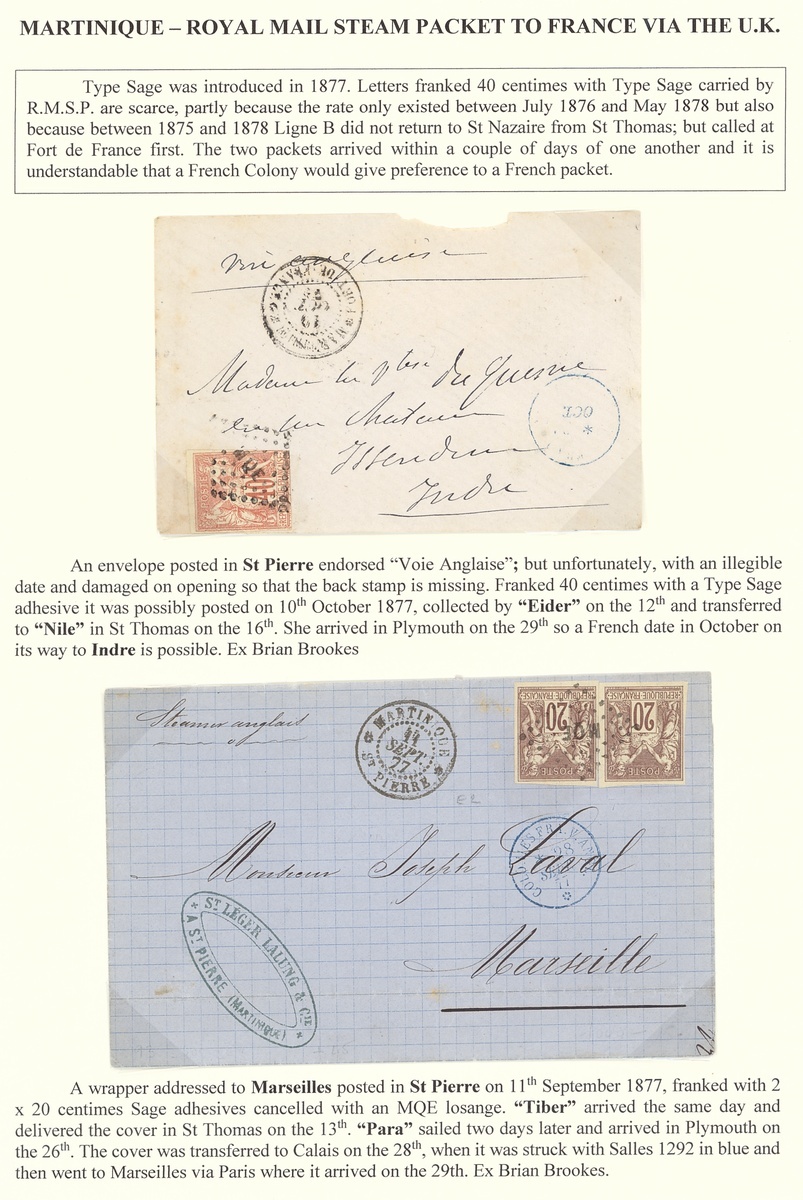 MARTINIQUE – ROYAL MAIL STEAM PACKET TO FRANCE VIA THE U.K.
Type Sage was introduced in 1877. Letters franked 40 centimes with Type Sage carried by
R.M.S.P. are scarce, partly because the rate only existed between July 1876 and May 1878 but also
because between 1875 and 1878 Ligne B did not return to St Nazaire from St Thomas; but called at
Fort de France first. The two packets arrived within a couple of days of one another and it is
understandable that a French Colony would give preference to a French packet.
voie anglaise
Madame
Issoudun
Indre
OCT.
MQE
POSTES 40
An envelope posted in St Pierre endorsed “Voie Anglaise”; but unfortunately, with an illegible
date and damaged on opening so that the back stamp is missing. Franked 40 centimes with a Type Sage
adhesive it was possibly posted on 10th October 1877, collected by “Eider” on the 12th and transferred
to “Nile” in St Thomas on the 16th. She arrived in Plymouth on the 29th so a French date in October on
its way to Indre is possible. Ex Brian Brookes
Steamer anglais
MARTINIQUE
11
SEPT.
77
ST PIERRE
REPUBLIQUE FRANÇAISE
20
POSTE
REPUBLIQUE FRANÇAISE
20
POSTE
MQE
E2
COLONIES FR. V. ANGL.
28
SEPT
77
Monsieur Joseph Laval
Marseille
ST LÉGER LALUNG & CIE
A ST PIERRE (MARTINIQUE)
A wrapper addressed to Marseilles posted in St Pierre on 11th September 1877, franked with 2
x 20 centimes Sage adhesives cancelled with an MQE losange. “Tiber” arrived the same day and
delivered the cover in St Thomas on the 13th. “Para” sailed two days later and arrived in Plymouth on
the 26th. The cover was transferred to Calais on the 28th, when it was struck with Salles 1292 in blue and
then went to Marseilles via Paris where it arrived on the 29th. Ex Brian Brookes.